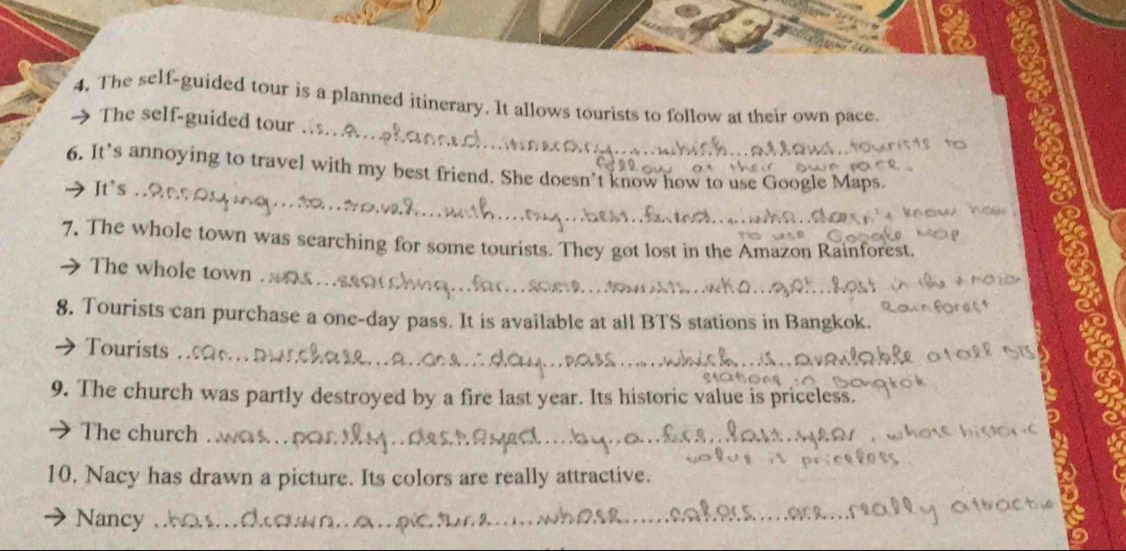 4. The self-guided tour is a planned itinerary. It allows tourists to follow at their own pace.
→ The self-guided tour is a planned itinerary, which allows tourists to
follow at their own pace.
6. It's annoying to travel with my best friend. She doesn't know how to use Google Maps.
→ It's annoying to travel with my best friend, who doesn't know how
to use Google Map
7. The whole town was searching for some tourists. They got lost in the Amazon Rainforest.
→ The whole town was searching for some tourists who got lost in the Amazon
Rainforest
8. Tourists can purchase a one-day pass. It is available at all BTS stations in Bangkok.
→ Tourists can purchase a one-day pass, which is available at all BTS
stations in Bangkok.
9. The church was partly destroyed by a fire last year. Its historic value is priceless.
→ The church was partly destroyed by a fire last year, whose historic
value is priceless.
10. Nacy has drawn a picture. Its colors are really attractive.
→ Nancy has drawn a picture, whose colors are really attractive